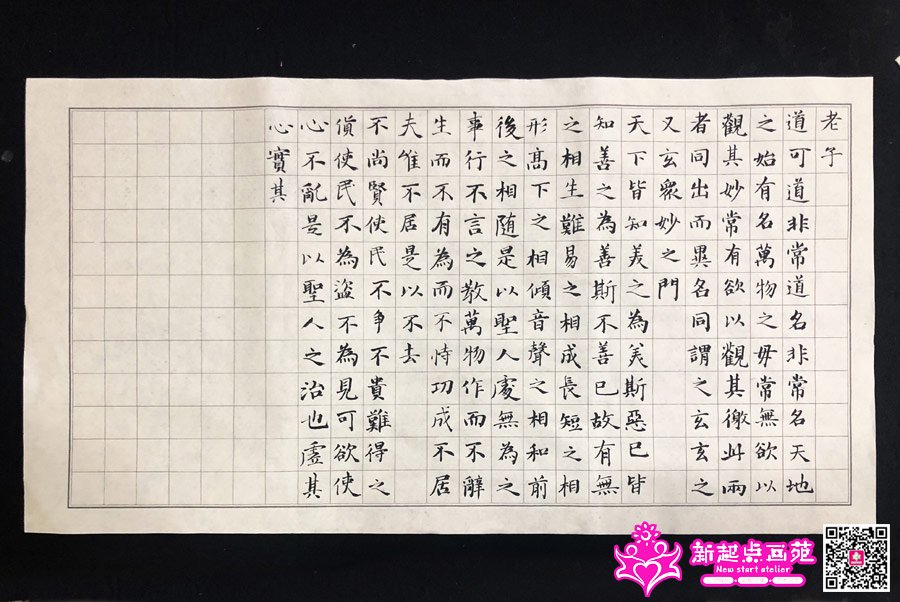 老子
道可道非常道名非常名天地
之始有名萬物之毋常無欲以
觀其妙常有欲以觀其徼此兩
者同出而異名同謂之玄玄之
又玄眾妙之門
天下皆知美之為美斯惡已皆
知善之為善斯不善已故有無
之相生難易之相成長短之相
形髙下之相傾音聲之相和前
後之相随是以聖人處無為之
事行不言之教萬物作而不辭
生而不有為而不恃功成不居
夫惟不居是以不去
不尚賢使民不争不貴難得之
貨使民不為盜不為見可欲使
心不亂是以聖人之治也虛其
心實其
新起点画苑
New start atelier